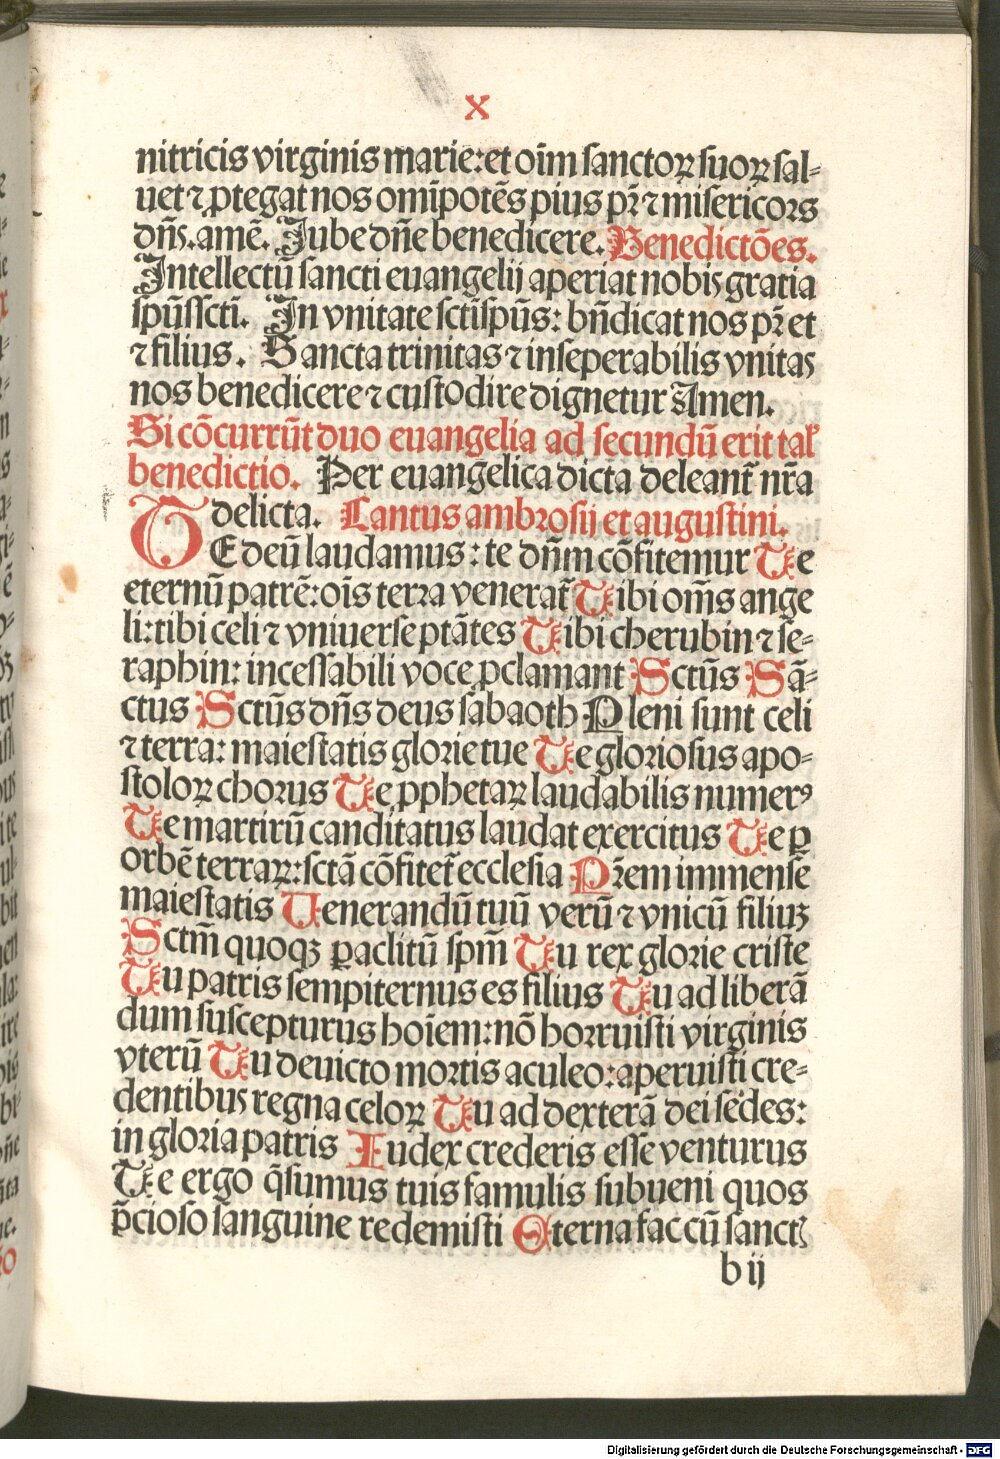 X
nitricis virginis marie: et oīm sanctoꝝ suoꝝ sal⸗
uet ⁊ ꝓtegat nos omīpotēs pius pr̄ ⁊ misericors
dn̄s. amē. Jube dn̄e benedicere. Benedictōes.
Intellectū sancti euangelij aperiat nobis gratia
spūssctī. In vnitate sctīspūs: bn̄dicat nos pr̄ et
⁊ filius. Sancta trinitas ⁊ inseperabilis vnitas
nos benedicere ⁊ custodire dignetur Amen.
Si cōcurrūt duo euangelia ad secundū erit tal'
benedictio. Per euangelica dicta deleant̄ nr̄a
delicta. Cantus ambrosij et augustini.
TE deū laudamus: te dn̄m cōfitemur Te
eternū patrē: ois̄ terra venerat̄ Tibi om̄s ange
li: tibi celi ⁊ vniuerse ptātes Tibi cherubin ⁊ se⸗
raphin: incessabili voce ꝓclamant Sctūs Sā⸗
ctus Sctūs dn̄s deus sabaoth Pleni sunt celi
⁊ terra: maiestatis glorie tue Te gloriosus apo⸗
stoloꝝ chorus Te ꝓphetaꝝ laudabilis numerꝰ
Te martirū canditatus laudat exercitus Te ꝑ
orbē terraꝝ: sctā cōfitet̄ ecclesia Pr̄em immensē
maiestatis Uenerandū tuū verū ⁊ vnicū filiuꝫ
Sctm̄ quoqꝫ ꝑaclitū spm̄ Tu rex glorie criste
Tu patris sempiternus es filius Tu ad liberā
dum suscepturus hoiem: nō horruisti virginis
vterū Tu deuicto mortis aculeo: aperuisti cre⸗
dentibus regna celoꝝ Tu ad dexterā dei sedes:
in gloria patris Iudex crederis esse venturus
Te ergo q̄sumus tuis famulis subueni quos
p̄cioso sanguine redemisti Eterna fac cū sanct̄
b ij
Digitalisierung gefördert durch die Deutsche Forschungsgemeinschaft - DFG